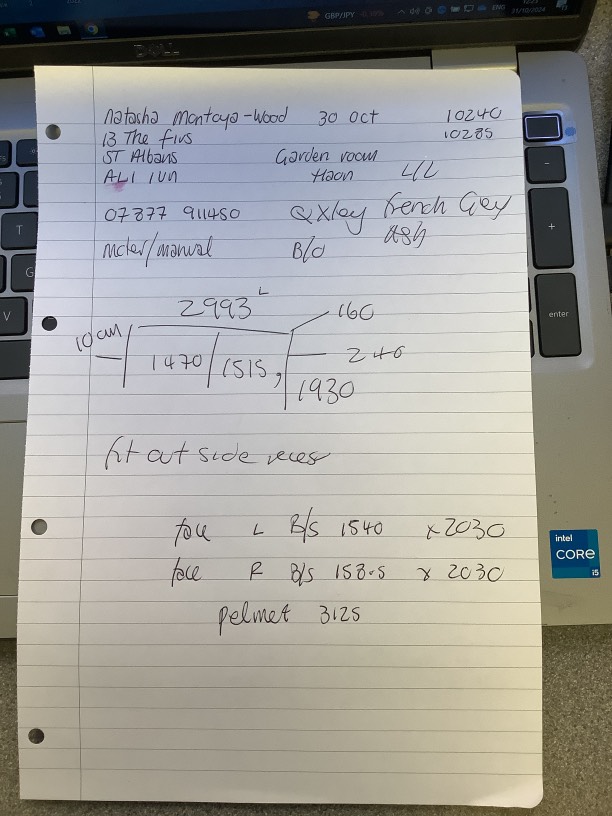 GBP/JPY
ENG
31/10/2024
DELL
Natasha Montoya-Wood 30 Oct 10240
13 The Firs 10285
ST Albans Garden room
AL1 1UN L/L
07877 911450 French Grey
Ash
/manual B/O
2993 L
160
10cm
1470 1515
240
1930
fit out side recess
face L B/S 1540 x 2030
face R B/S 158.5 x 2030
pelmet 3125
T
G
V
-
+
enter
intel
CORE
i5